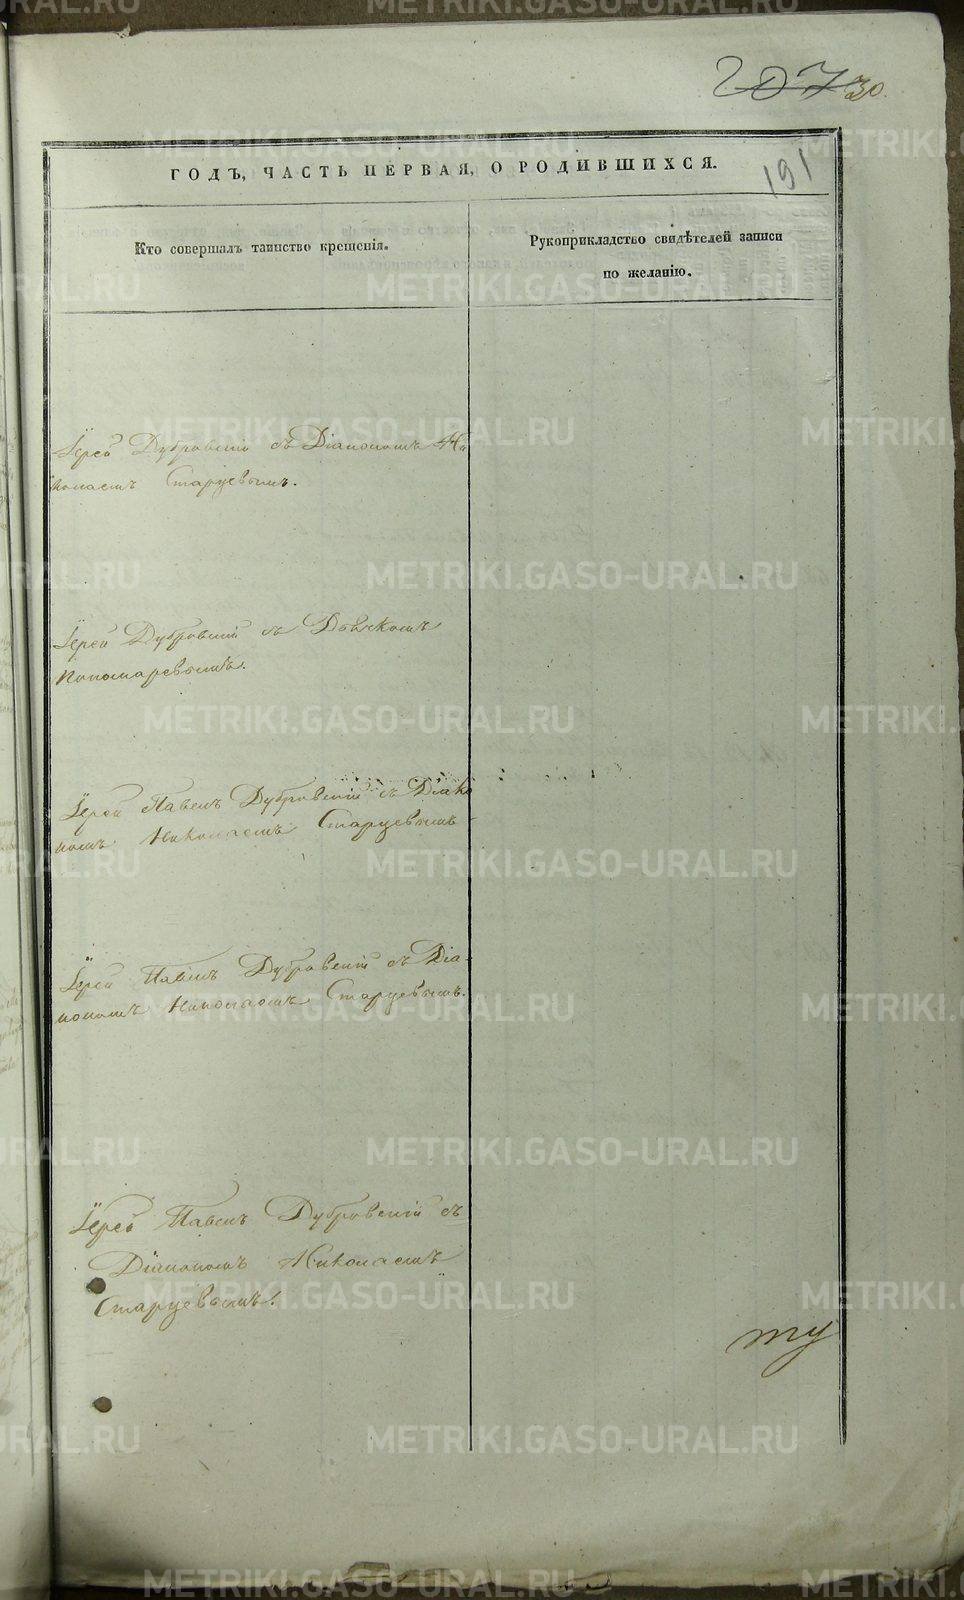 207 30
191
ГОДЪ, ЧАСТЬ ПЕРВАЯ, О РОДИВШИХСЯ.
Кто совершалъ таинство крещенія.
Рукоприкладство свидѣтелей записи
по желанію.
Іерей Дубровскій съ Діакономъ Ни
колаемъ Старцевымъ.
Іерей Дубровскій съ Дьячкомъ
Пономаревымъ.
Іерей Павелъ Дубровскій съ Діако
номъ Николаемъ Старцевымъ
Іерей Павелъ Дубровскій съ Діа-
кономъ Николаемъ Старцевымъ.
Іерей Павелъ Дубровскій съ
Діакономъ Николаемъ
Старцевымъ.
METRIKI.GASO-URAL.RU